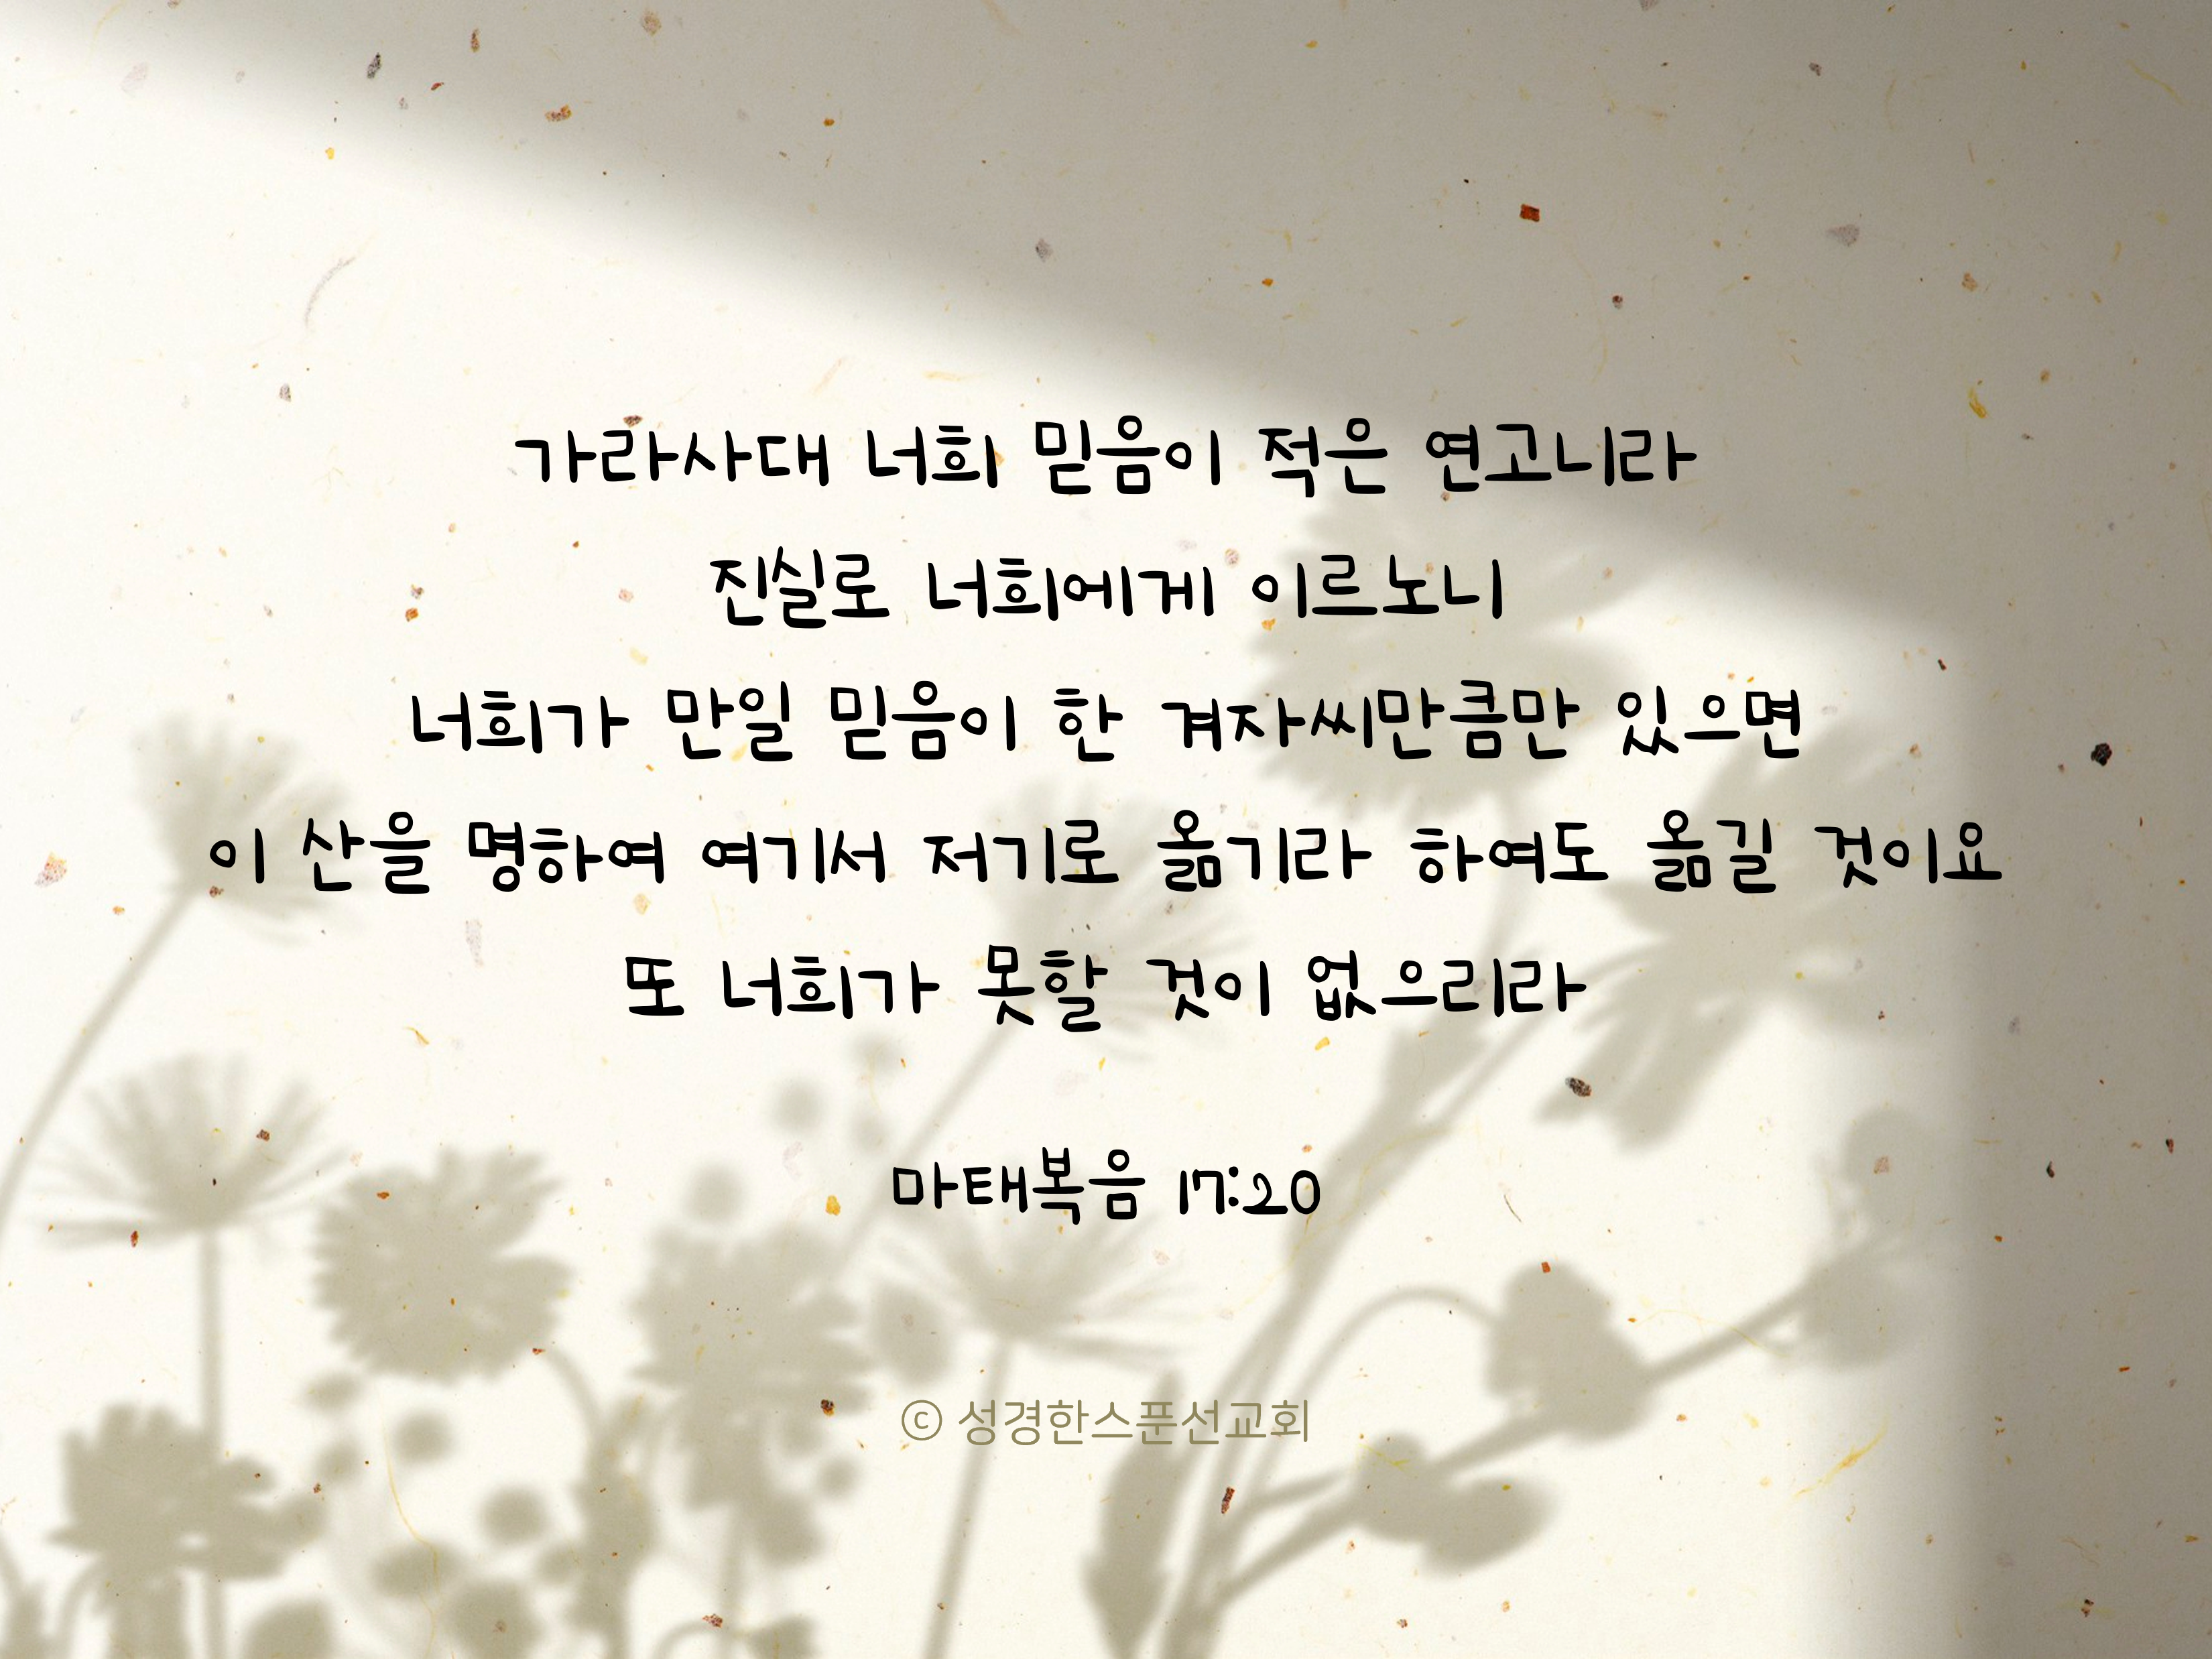 가라사대 너희 믿음이 적은 연고니라
진실로 너희에게 이르노니
너희가 만일 믿음이 한 겨자씨만큼만 있으면
이 산을 명하여 여기서 저기로 옮기라 하여도 옮길 것이요
또 너희가 못할 것이 없으리라
마태복음 17:20
ⓒ 성경한스푼선교회